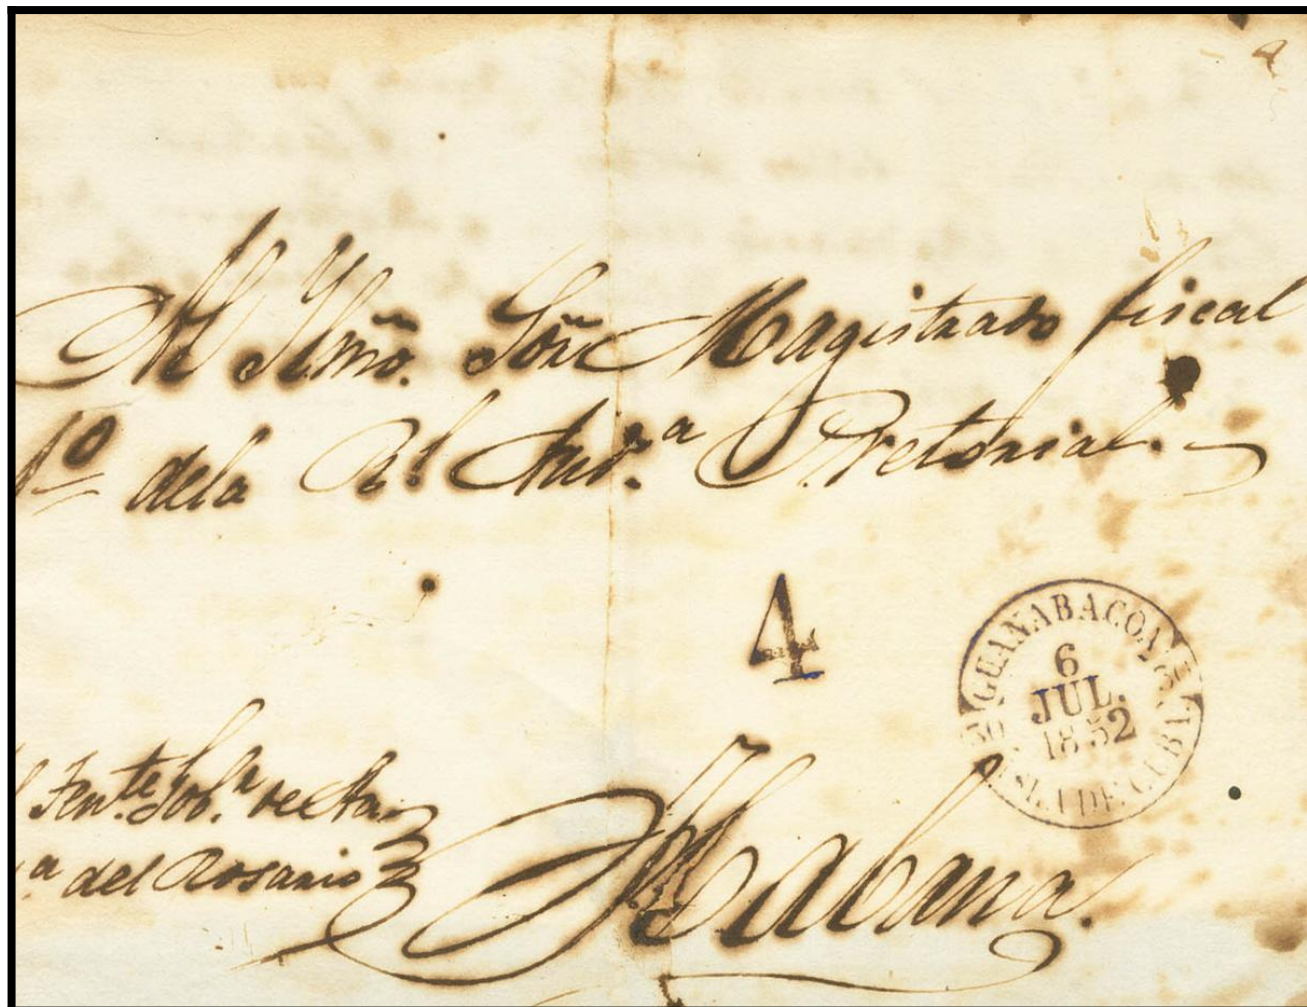 Al Yllmo. Sōr Magistrado fiscal
1º dela Rl Aud.ª Pretorial.
4
GUANABACOA
6
JUL.
1852
ISLA DE CUBA.
Tente. Gobr. de Sta.
ª del Rosario
Habana.